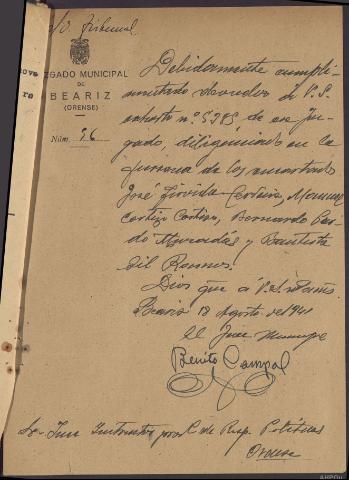 s/o. Tribunal
ZGADO MUNICIPAL
DE
BEARIZ
(ORENSE)
Núm. 96
Debidamente cumpli-
mentado devuelvo á V.S.
exhorto nº 5285 de ese Juz-
gado, diligenciado en la
persona de los encartados
José Cerdeira, Manuel
Cortizo Cortizo, Bernardo
y Bautista
Gil
Dios que á V.S.
Beariz 18 Agosto de 1941
El Juez Municipal
Benito Campal
Sr. Juez Instructor prov. C. de Resp. Políticas
Orense